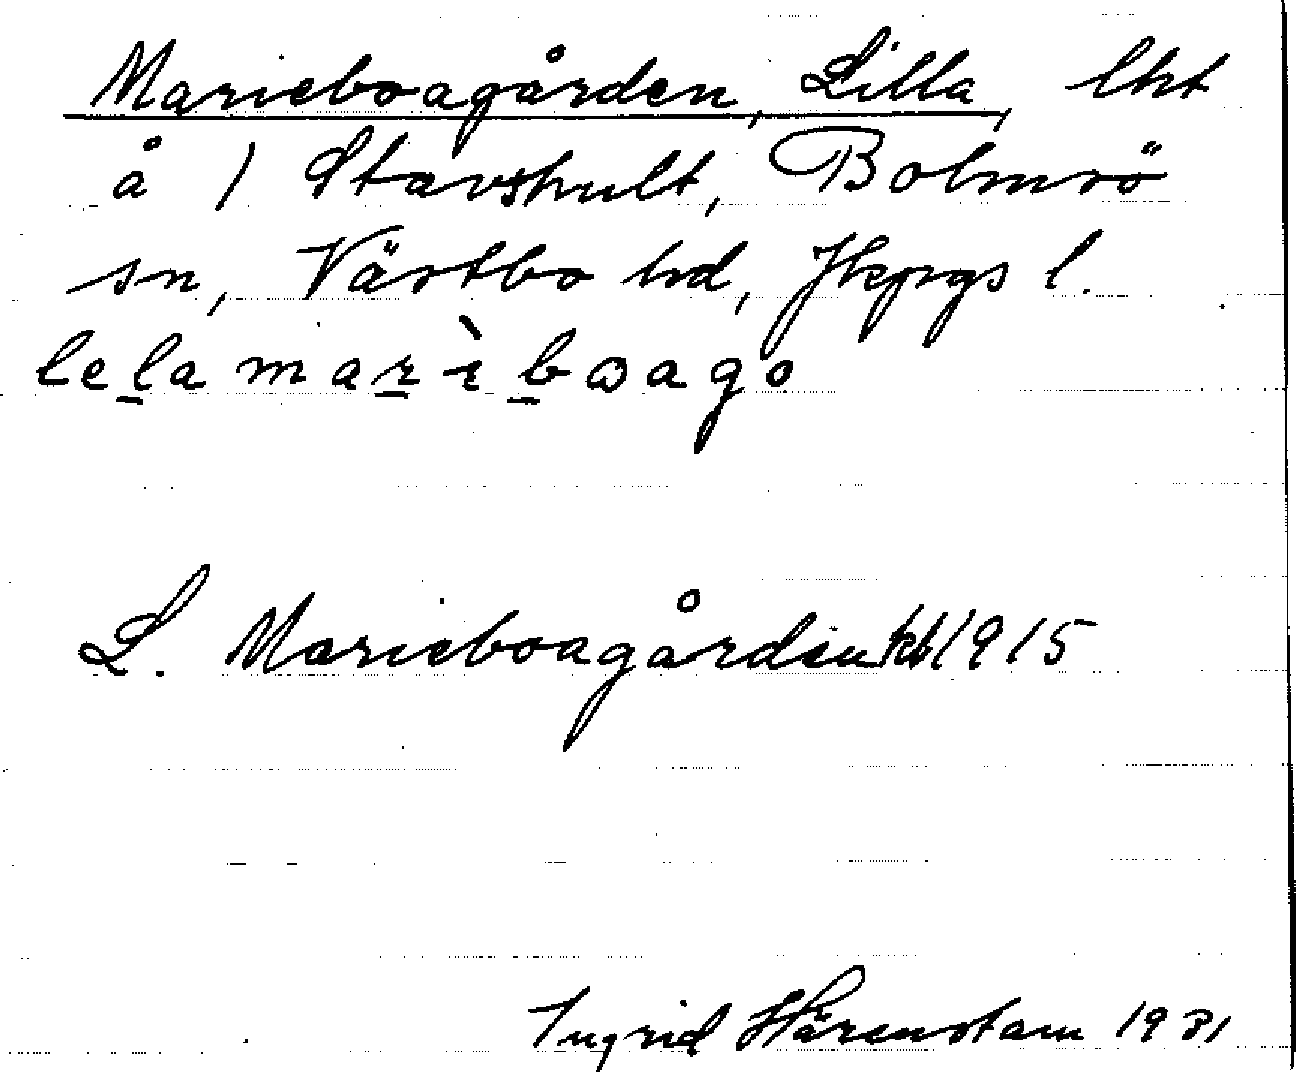 Marieboagården, Lilla, lht
å 1 Stavshult, Bolmsö
sn, Västbo hd, Jkpgs l.
lelamarìbɷago
L. Marieboagården kb 1915
Ingrid Härenstam 1931